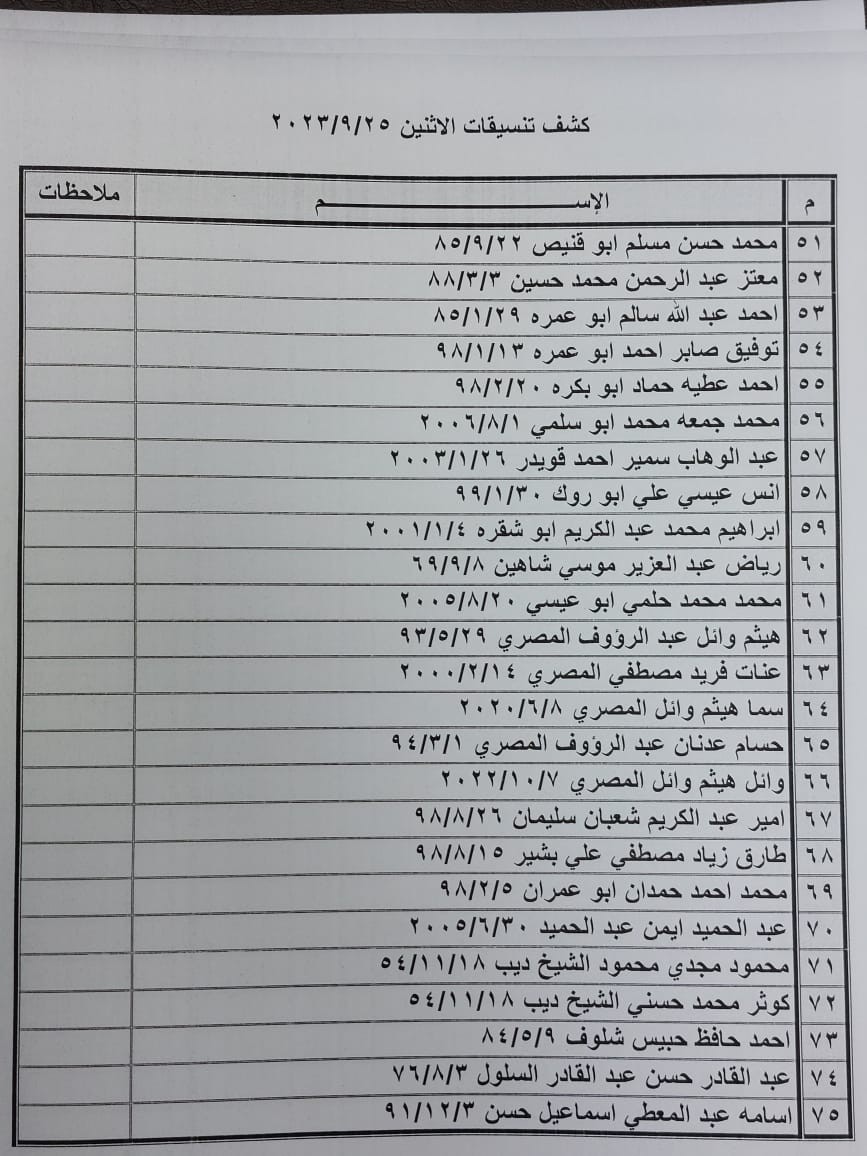 كشف تنسيقات الاثنين ٢٠٢٣/٩/٢٥
م الإســـــم ملاحظات
٥١ محمد حسن مسلم ابو قنيص ٨٥/٩/٢٢
٥٢ معتز عبد الرحمن محمد حسين ٨٨/٣/٣
٥٣ احمد عبد الله سالم ابو عمره ٨٥/١/٢٩
٥٤ توفيق صابر احمد ابو عمره ٩٨/١/١٣
٥٥ احمد عطيه حماد ابو بكره ٩٨/٢/٢٠
٥٦ محمد جمعه محمد ابو سلمي ٢٠٠٦/٨/١
٥٧ عبد الوهاب سمير احمد قويدر ٢٠٠٣/١/٢٦
٥٨ انس عيسي علي ابو روك ٩٩/١/٣٠
٥٩ ابراهيم محمد عبد الكريم ابو شقره ٢٠٠١/١/٤
٦٠ رياض عبد العزير موسي شاهين ٦٩/٩/٨
٦١ محمد محمد حلمي ابو عيسي ٢٠٠٥/٨/٢٠
٦٢ هيثم وائل عبد الرؤوف المصري ٩٣/٥/٢٩
٦٣ عنات فريد مصطفي المصري ٢٠٠٠/٢/١٤
٦٤ سما هيثم وائل المصري ٢٠٢٠/٦/٨
٦٥ حسام عدنان عبد الرؤوف المصري ٩٤/٣/١
٦٦ وائل هيثم وائل المصري ٢٠٢٢/١٠/٧
٦٧ امير عبد الكريم شعبان سليمان ٩٨/٨/٢٦
٦٨ طارق زياد مصطفي علي بشير ٩٨/٨/١٥
٦٩ محمد احمد حمدان ابو عمران ٩٨/٢/٥
٧٠ عبد الحميد ايمن عبد الحميد ٢٠٠٥/٦/٣٠
٧١ محمود مجدي محمود الشيخ ديب ٥٤/١١/١٨
٧٢ كوثر محمد حسني الشيخ ديب ٥٤/١١/١٨
٧٣ احمد حافظ حبيس شلوف ٨٤/٥/٩
٧٤ عبد القادر حسن عبد القادر السلول ٧٦/٨/٣
٧٥ اسامه عبد المعطي اسماعيل حسن ٩١/١٢/٣